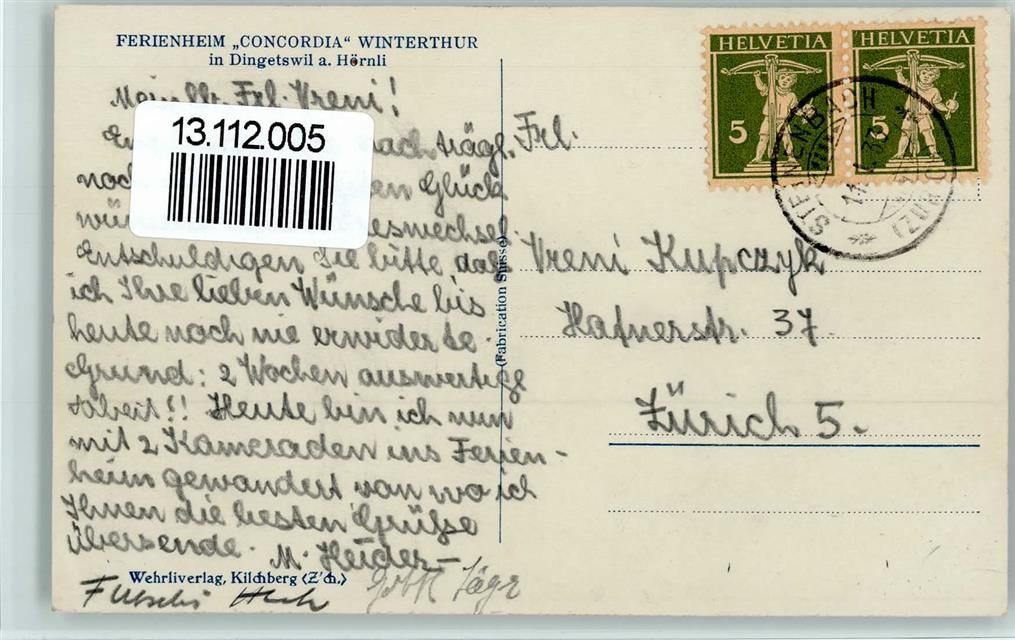 FERIENHEIM „CONCORDIA“ WINTERTHUR
in Dingetswil a. Hörnli
Frl. Vreni!
13.112.005
nachträgl.
noch Glück
Entschuldigen Sie bitte, daß
ich Ihre lieben Wünsche bis
heute noch nie erwiderte.
Grund: 2 Wochen auswertige
Arbeit!! Heute bin ich nun
mit 2 Kameraden ins Ferien-
heim gewandert von wo ich
Ihnen die besten Grüße
übersende. M. Heider
Wehrliverlag, Kilchberg (Z'ch.)
Jäger
(Fabrication Suisse)
HELVETIA
5
HELVETIA
5
STEINENBACH
Frl.
Vreni Kupczyk
Hafnerstr. 37
Zürich 5.